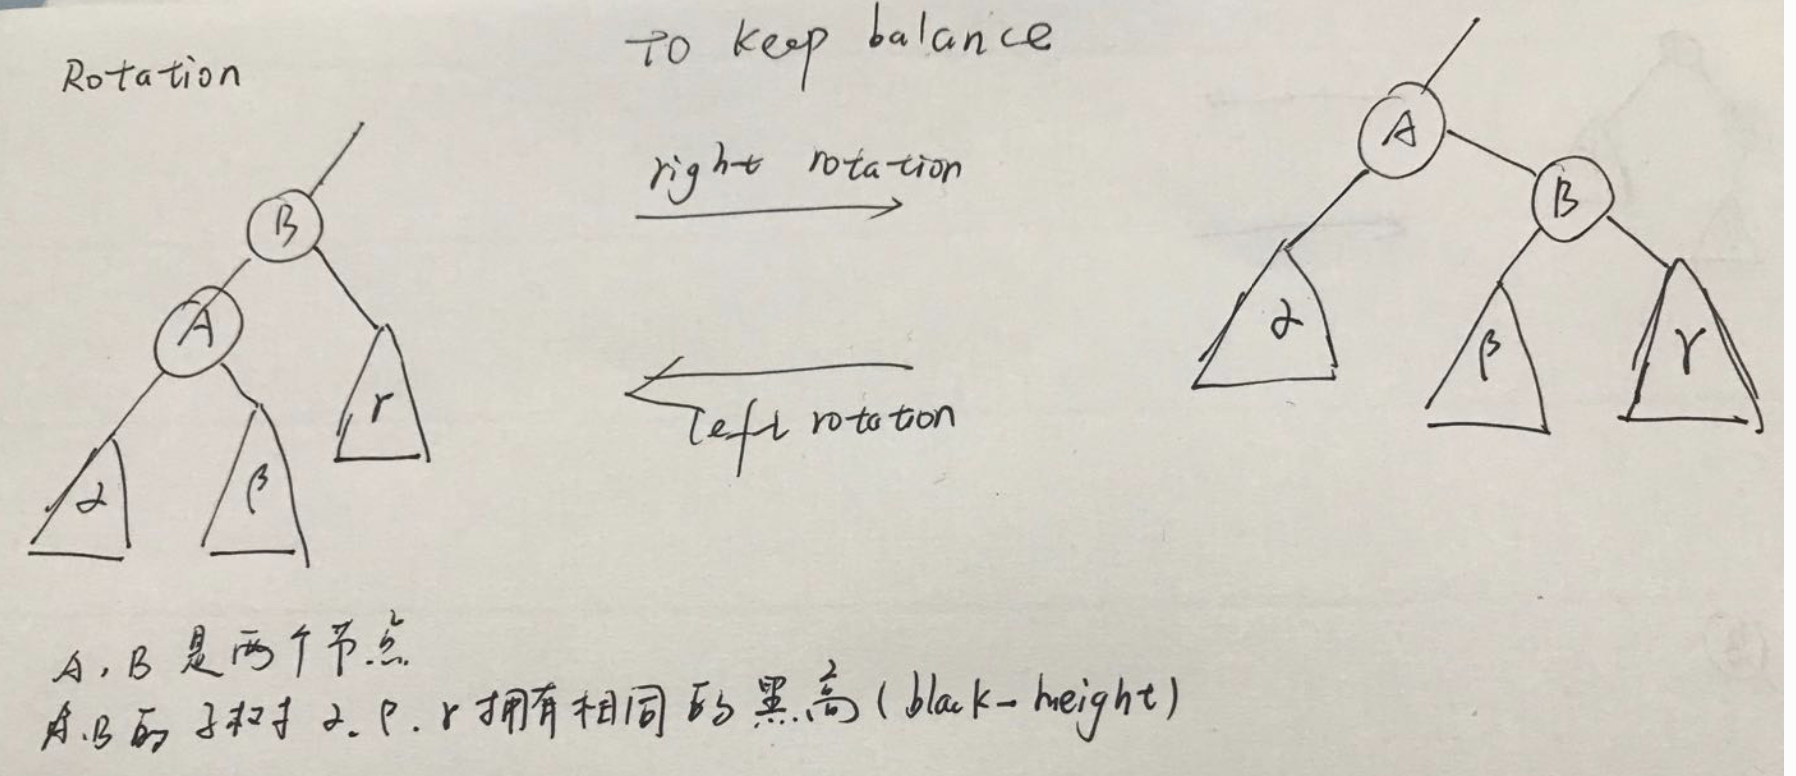 Rotation
To keep balance
right rotation
left rotation
B
A
α
β
γ
A
B
α
β
γ
A, B 是两个节点
A.B 的 子树 α. β. γ 拥有相同的黑高 (black-height)